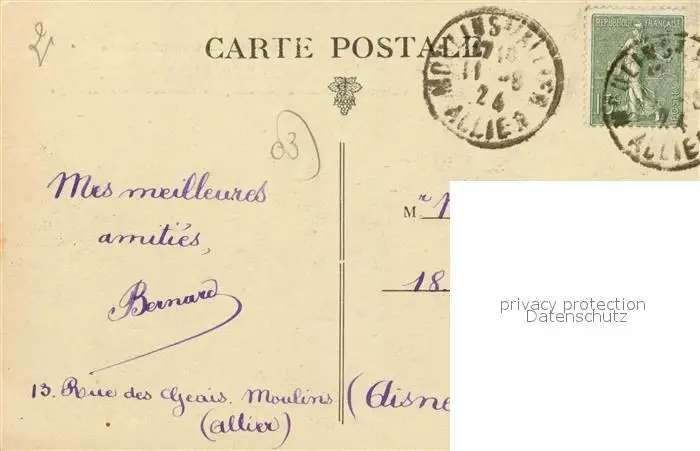 2
CARTE POSTALE
MOULINS S/ ALLIER
11 -8
24
ALLIER
REPUBLIQUE FRANÇAISE
MOULINS
24
ALLIER
03
Mes meilleures
amitiés,
Bernard
13. Rue des Geais. Moulins
(Allier)
Mr
18.
(Aisne
privacy protection
Datenschutz